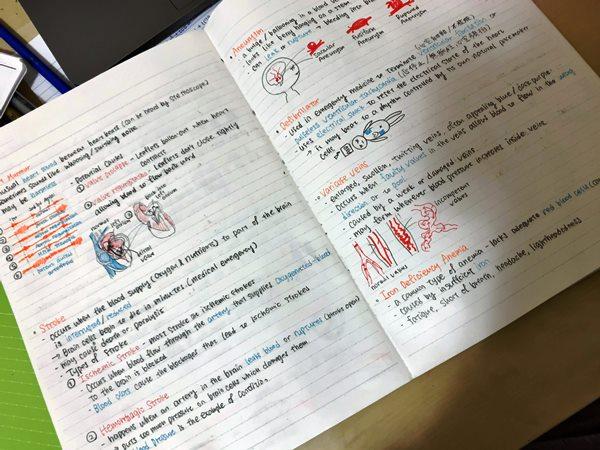 Murmur
unusual heart sound between heart beats (can be heard by stethoscope)
sometimes sound like whooshing/
may be harmless
- Potential causes
① valve prolapse - leaflets bulge out when heart
contract
② valve regurgitation - leaflets don't close tightly
allowing blood to flow backward
normal valve
Stroke
- occurs when the blood supply (oxygen & nutrients) to part of the brain
is interrupted/reduced
→ Brain cells begin to die in minutes. (medical emergency)
may cause death or paralysis
- Types of stroke
① Ischemic stroke - most stroke are ischemic strokes
- occurs when blood flow through the artery that supplies oxygenated-blood
to the brain is blocked
- Blood clots cause the blockages that lead to ischemic strokes
② Hemorrhagic Stroke
- happens when an artery in the brain leaks blood or ruptures (breaks open)
puts too much pressure on brain cells which damages them
blood pressure is the example of condition.
Aneurysm
- bulge / ballooning in a blood
- looks like berry hanging on a stem
- can leak or rupture → bleeding into brain
Saccular Aneurysm
Fusiform Aneurysm
Ruptured Aneurysm
Defibrillator
- used in emergency medicine to terminate ventricular fibrillation or
pulseless ventricular tachycardia
- uses electrical shock to reset the electrical state of the heart
→ may beat to a rhythm controlled by its own natural pacemaker
cells
Varicose veins
- enlarged, swollen, twisting veins, often appearing blue/dark purple
- occurs when faulty valves in the vein allow blood to flow in the wrong
direction or to pool
- caused by a weak or damaged valves
- may form whenever blood pressure increases inside veins
normal valves
incompetent valves
Iron Deficiency Anemia
- a common type of anemia - lacks adequate red blood cells
- caused by insufficient iron
- fatigue, short of breath, headache, lightheadedness